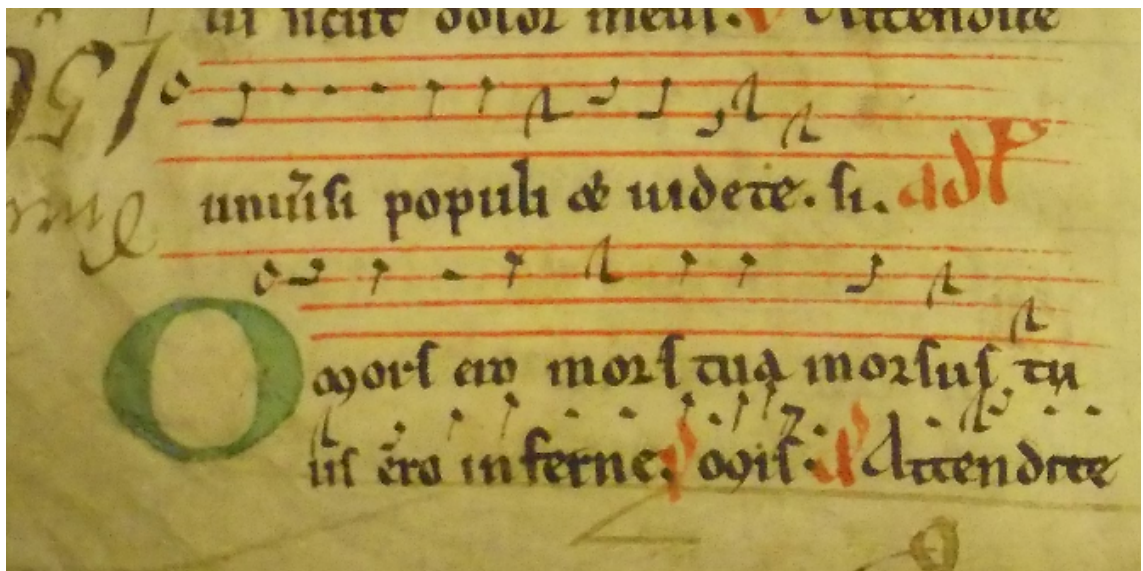 dolor meus. Attendite
uniũsi populi & uidete. si. adł
O mors ero mors tua morsus tu
us ero inferne. Attendite